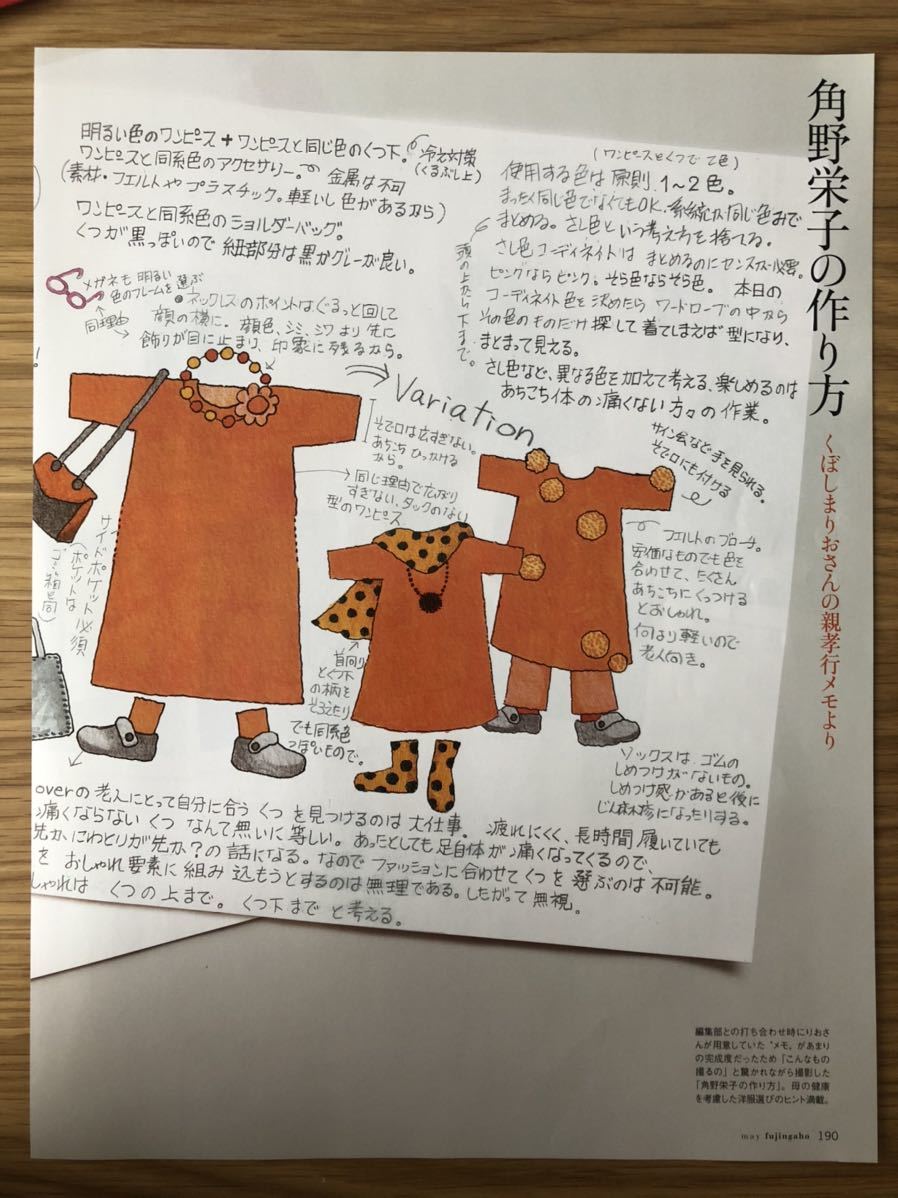 角野栄子の作り方
くぼしまりおさんの親孝行メモより
明るい色のワンピース + ワンピースと同じ色のくつ下。
冷え対策
(くるぶし上)
ワンピースと同系色のアクセサリー。 金属は不可
(素材・フェルトやプラスチック。軽いし色があるから)
ワンピースと同系色のショルダーバッグ。
くつが黒っぽいので 紐部分は黒かグレーが良い。
メガネも明るい
色のフレームを選ぶ
同理由
ネックレスのポイントはぐるっと回して
顔の横に。顔色、シミ、シワより先に
飾りが目に止まり、印象に残るから。
(ワンピースとくつで2色)
使用する色は原則、1〜2色。
まったく同じ色でなくてもOK。系統が同じ色みで
まとめる。さし色という考え方を捨てる。
さし色コーディネイトは まとめるのにセンスが必要。
ピンクならピンク。そら色ならそら色。 本日の
コーディネイト色を決めたら ワードローブの中から
その色のものだけ探して着てしまえば型になり、
まとまって見える。
さし色など、異なる色を加えて考える、楽しめるのは
あちこち体の痛くない方々の作業。
頭の上から下まで。
Variation
そで口は広すぎない。
あちこちひっかける
から。
同じ理由で広がり
すぎない、タックのない
型のワンピース
サイドポケット必須
(ポケットは
ゴミ箱と同)
サイン会など手を見られる。
そで口にも付ける
フェルトのブローチ。
安価なものでも色を
合わせて、たくさん
あちこちにくっつける
とおしゃれ。
何より軽いので
老人向き。
首回り
とくつ下
の柄を
そろえたり
でも同系色
っぽいもので。
ソックスは、ゴムの
しめつけがないもの。
しめつけ感があると後に
じん麻疹になったりする。
overの老人にとって自分に合う くつ を見つけるのは 大仕事。 疲れにくく、長時間履いていても
痛くならない くつ なんて無いに等しい。あったとしても足自体が痛くなってくるので、
先か、にわとりが先か?の話になる。なので ファッションに合わせてくつを 選ぶのは不可能。
を おしゃれ要素に組み込もうとするのは無理である。したがって無視。
しゃれは くつの上まで。くつ下までと考える。
編集部との打ち合わせ時にりおさ
んが用意していた“メモ”があまり
の完成度だったため「こんなもの
撮るの」と驚かれながら撮影した
「角野栄子の作り方」。母の健康
を考慮した洋服選びのヒント満載。
may fujingaho 190